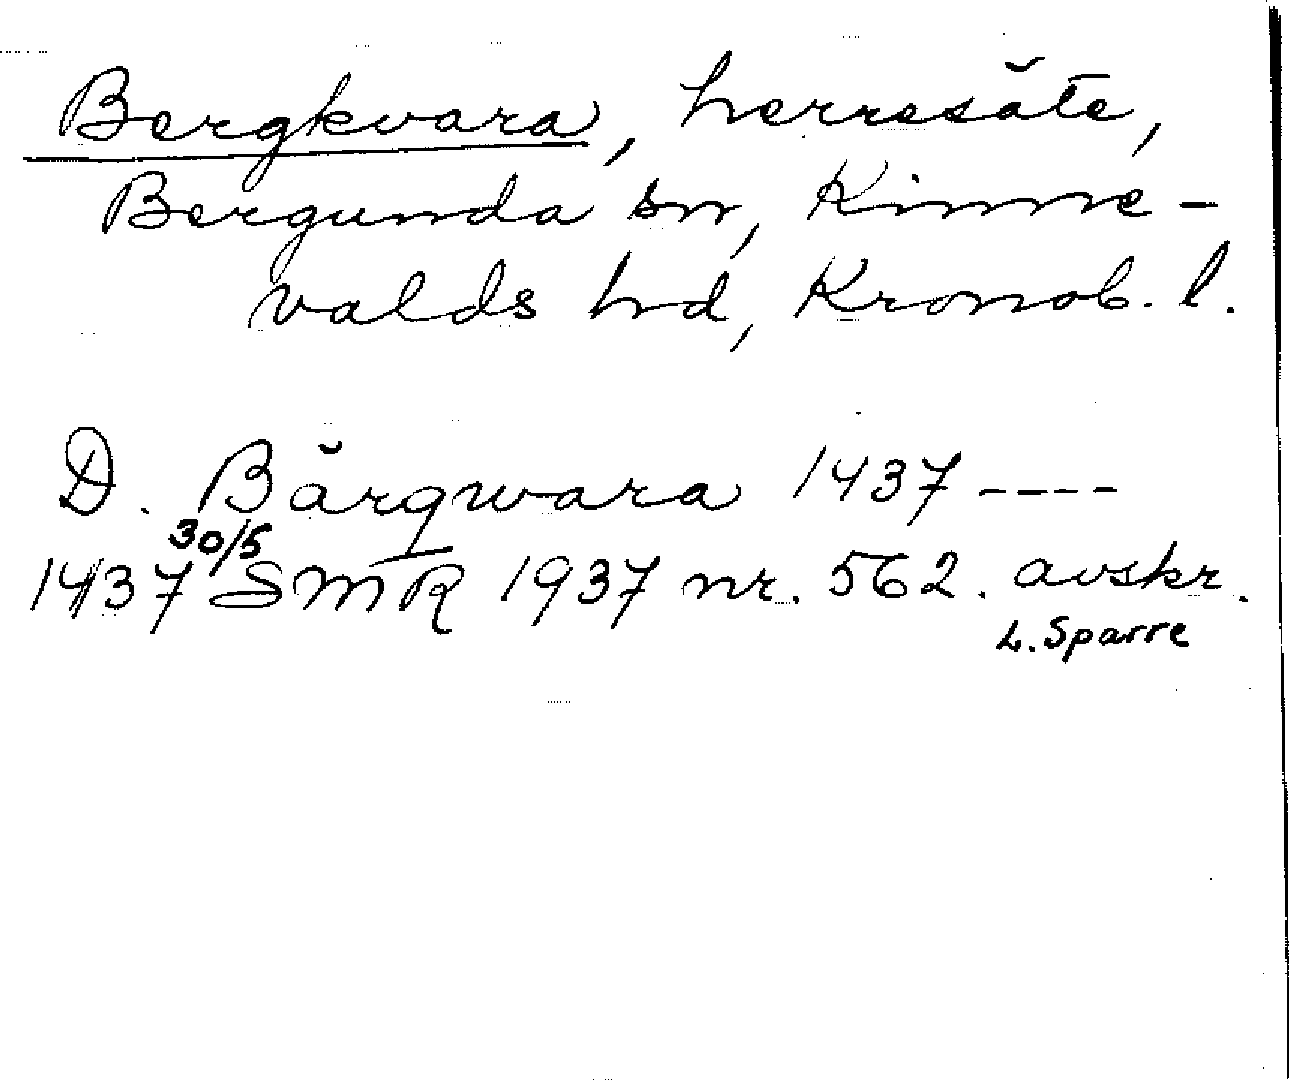 Bergkvara, herresäte,
Bergunda sn, Kinne-
valds hd, Kronob. l.
D. Bärqwara 1437 ----
1437 30/5 SMR 1937 nr. 562. avskr.
L. Sparre